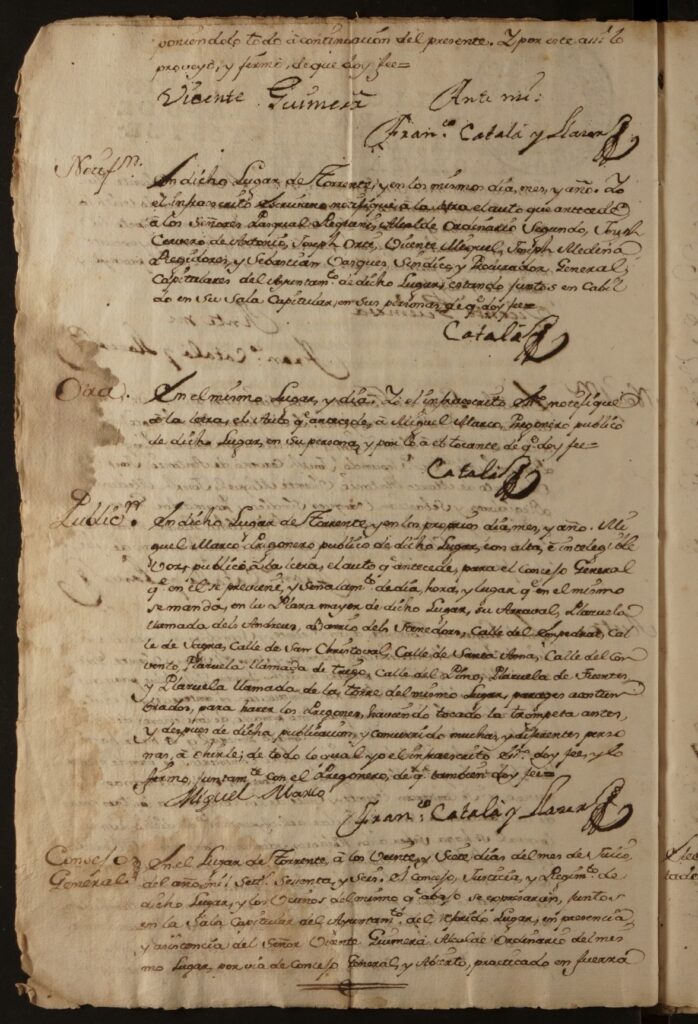 poniendolo todo à continuacion del presente. Y por este assi lo
proveyò, y firmò, de que doy fee=
Vicente Guimerà Ante mi:
Fran.co Català y Llaser
Notif.n
En dicho Lugar de Torrente, y en los mismos dia, mes, y año. Yo
el infrascrito Escrivano notifiquè à la letra el auto que antecede
à los Señores Pasqual Alcalde Ordinario Segundo, Joseph
Cervero de Antonio, Joseph Orti, Vicente Miquel, Joseph Medina
Regidores, y Sebastian Vasques Sindico, y Procurador General,
Capitulares del Ayuntam.to de dicho Lugar, estando juntos en Cabil-
do en su Sala Capitular, en sus personas de q.e doy fee=
Català
Otra.
En el mismo Lugar, y dia, Yo el infraescrito Ess.no notifiquè
à la letra, el Auto q.e antecede, à Miquel Marco, Pregonero publico
de dicho Lugar, en su persona, y por lo à el tocante, de q.e doy fee=
Català
Public.on
En dicho Lugar de Torrente, y en los proprios dia, mes, y año. Mi-
quel Marco, Pregonero publico de dicho Lugar, con alta, è inteligible
Vos, publicò à la letra, el auto q antecede, para el Consejo General
q.e en el se previene, y señalam.to de dia, hora, y lugar q.e en el mismo
se manda, en la Plaza mayor de dicho Lugar, su Arraval, Plazuela
llamada dels Andreus, Barrio dels Calle del Empedrat, Cal-
le de Calle de San Christoval, Calle de Santa Anna, Calle del Con-
vento, Plazuela llamada de Calle del Pino, Plazuela de Fuentes
y Plazuela llamada de la torre del mismo Lugar, parages acostum-
brados, para hazer los Pregones, haviendo tocado la trompeta antes,
y despues de dicha publicacion, y concurrido muchas, y diferentes perso-
nas, à ohirle; de todo lo qual yo el infraescrito Ess.no doy fee, y lo
firmo, juntam.te con el Pregonero, de q.e tambien doy fee=
Miguel Marco
Fran.co Català y Llaser
Consejo
General
En el Lugar de Torrente, à los Veinte, y Siete dias del mes de Julio
del año mil Set.s Sesenta, y Seis. El Consejo, Justicia, y Regim.to de
dicho Lugar, y los Vecinos del mismo q.e abajo se expresaràn, juntos
en la Sala Capitular del Ayuntam.to del referido Lugar, en presencia,
y asistencia del Señor Vicente Guimerà Alcalde Ordinario del mis-
mo Lugar, por via de Consejo General, y Abierto, practicado en fuerza